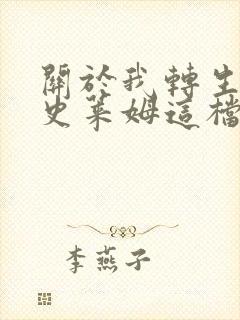 關於我轉生
史萊姆這檔
李燕子